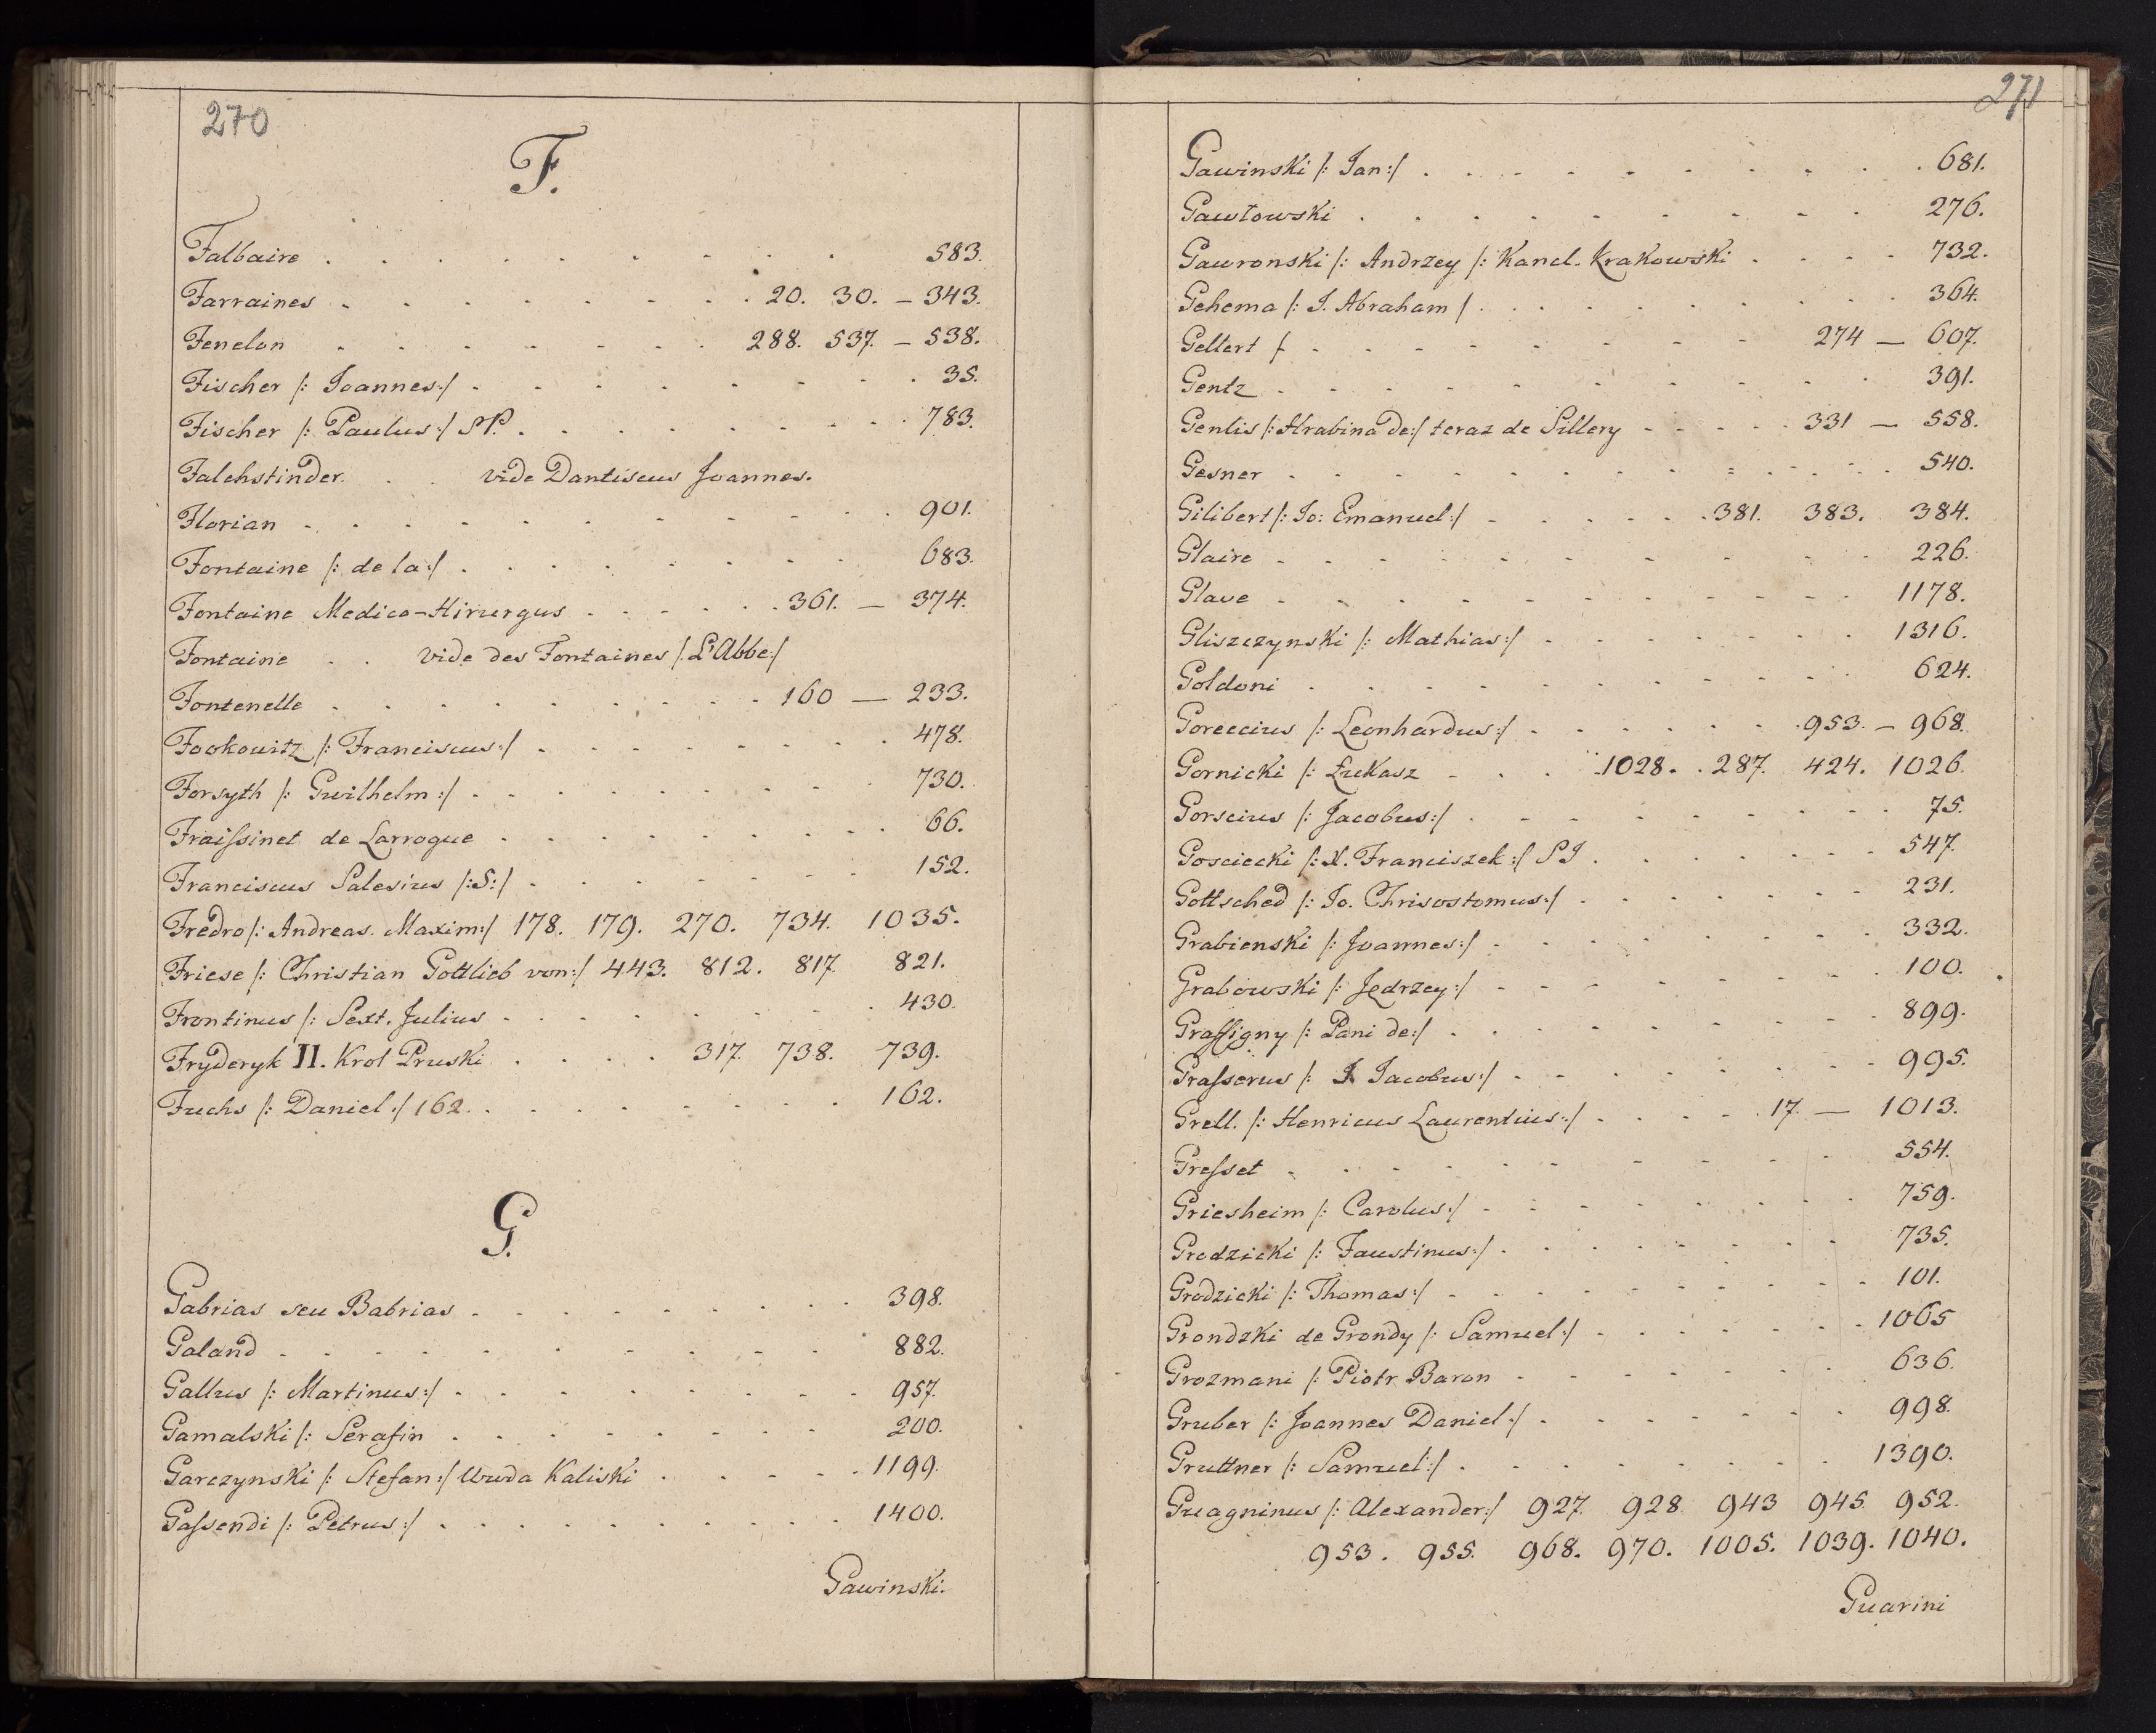 270
F.
Falbaire . . . . . . . . . 583.
Farraines . . . . . . . . 20. 30. – 343.
Fenelon . . . . . . . 288. 537. – 538.
Fischer /: Joannes:/ . . . . . . . . 35.
Fischer /: Paulus:/ SP. . . . . . . . . 783.
Falchstinder. . . vide Dantiscus Joannes.
Florian . . . . . . . . . . . 901.
Fontaine /: de la:/ . . . . . . . . 683.
Fontaine Medico-Hirurgus . . . . . . 361. — 374.
Fontaine . . vide des Fontaines /: L'Abbe:/
Fontenelle . . . . . . . . . 160 — 233.
Fookowitz /: Franciscus:/ . . . . . . . . 478.
Forsyth /: Gwilhelm:/ . . . . . . . . 730.
Fraiſsinet de Larroque . . . . . . . . . 66.
Franciscus Salesius /:S:/ . . . . . . . 152.
Fredro /: Andreas. Maxim:/ 178. 179. 270. 734. 1035.
Friese /: Christian Gottlieb von:/ 443. 812. 817. 821.
Frontinus /: Sext. Julius . . . . . . . . 430.
Fryderyk II. Krol Pruski . . . . 317. 738. 739.
Fuchs /: Daniel:/ 162. . . . . . . . . 162.
G.
Gabrias seu Babrias . . . . . . . . . 398.
Galand . . . . . . . . . . 882.
Gallus /: Martinus:/ . . . . . . . . . 957.
Gamalski /: Serafin . . . . . . . . 200.
Garczynski /: Stefan:/ Wwda Kaliski . . . . . 1199.
Gaſsendi /: Petrus:/ . . . . . . . . . 1400.
Gawinski.
271
Gawinski /: Jan:/ . . . . . . . . . . 681.
Gawłowski . . . . . . . . . . 276.
Gawronski /: Andrzey /: Kancl. Krakowski . . . . 732.
Gehema /: J. Abraham / . . . . . . . . 364.
Gellert / . . . . . . . . . 274 — 607.
Gentz . . . . . . . . . . 391.
Genlis /: Hrabina de:/ teraz de Sillery . . . . . 331 — 558.
Gesner . . . . . . . . . . . 540.
Gilibert /: Jo: Emanuel:/ . . . . . . 381. 383. 384.
Glaire . . . . . . . . . . 226.
Glave . . . . . . . . . . . 1178.
Gliszczynski /: Mathias:/ . . . . . . . 1316.
Goldoni . . . . . . . . . . . 624.
Goreccius /: Leonhardus:/ . . . . . . 953. – 968.
Gornicki /: Łukasz . . . 1028. . 287. 424. 1026.
Gorscius /: Jacobus:/ . . . . . . . . . 75.
Gosciecki /: X. Franciszek:/ SJ . . . . . . . 547.
Gottsched /: Jo. Chrisostomus:/ . . . . . . 231.
Grabienski /: Joannes:/ . . . . . . . . 332.
Grabowski /: Jędrzey:/ . . . . . . . . 100.
Graffigny /: Pani de:/ . . . . . . . . . 899.
Graſserus /: J Jacobus:/ . . . . . . . . 995.
Grell. /: Henricus Laurentius:/ . . . . . 17. — 1013.
Greſset . . . . . . . . . . 554.
Griesheim /: Carolus:/ . . . . . . . . 759.
Grodzicki /: Faustinus:/ . . . . . . . . 735.
Grodzicki /: Thomas:/ . . . . . . . . 101.
Grondzki de Grondy /: Samuel:/ . . . . . . 1065
Grozmani /: Piotr Baron . . . . . . . 636.
Gruber /: Joannes Daniel:/ . . . . . . . 998.
Gruttner /: Samuel:/ . . . . . . . . 1390.
Guagninus /: Alexander:/ 927. 928. 943 945. 952.
953. 955. 968. 970. 1005. 1039. 1040.
Guarini